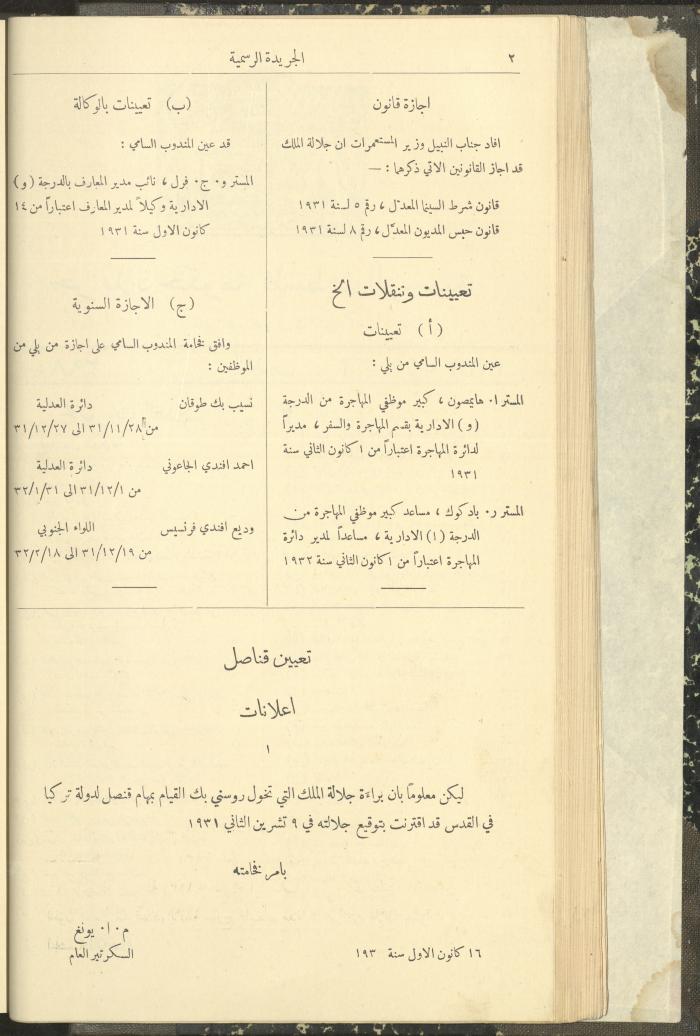 ٢
الجريدة الرسمية
اجازة قانون
افاد جناب النبيل وزير المستعمرات ان جلالة الملك
قد اجاز القانونين الاتي ذكرهما : —
قانون شرط السينما المعدّل ، رقم ٥ لسنة ١٩٣١
قانون حبس المديون المعدّل ، رقم ٨ لسنة ١٩٣١
تعيينات وتنقلات الخ
(أ) تعيينات
عين المندوب السامي من يلي :
المستر ا. هايمصون ، كبير موظفي المهاجرة من الدرجة
(و) الادارية بقسم المهاجرة والسفر ، مديراً
لدائرة المهاجرة اعتباراً من ١ كانون الثاني سنة
١٩٣١
المستر ر. بادكوك ، مساعد كبير موظفي المهاجرة من
الدرجة (١) الادارية ، مساعداً لمدير دائرة
المهاجرة اعتباراً من ١ كانون الثاني سنة ١٩٣٢
(ب) تعيينات بالوكالة
قد عين المندوب السامي :
المستر و. ج. فرل ، نائب مدير المعارف بالدرجة (و)
الادارية وكيلاً لمدير المعارف اعتباراً من ١٤
كانون الاول سنة ١٩٣١
(ج) الاجازة السنوية
وافق فخامة المندوب السامي على اجازة من يلي من
الموظفين :
نسيب بك طوقان دائرة العدلية
من ٣١/١١/٢٨ الى ٣١/١٢/٢٧
احمد افندي الجاعوني دائرة العدلية
من ٣١/١٢/١ الى ٣٢/١/٣١
وديع افندي فرنسيس اللواء الجنوبي
من ٣١/١٢/١٩ الى ٣٢/٢/١٨
تعيين قناصل
اعلانات
١
ليكن معلوماً بان براءة جلالة الملك التي تخول روسني بك القيام بمهام قنصل لدولة تركيا
في القدس قد اقترنت بتوقيع جلالته في ٩ تشرين الثاني ١٩٣١
بامر فخامته
م. ا. يونغ
السكرتير العام
١٦ كانون الاول سنة ١٩٣٠